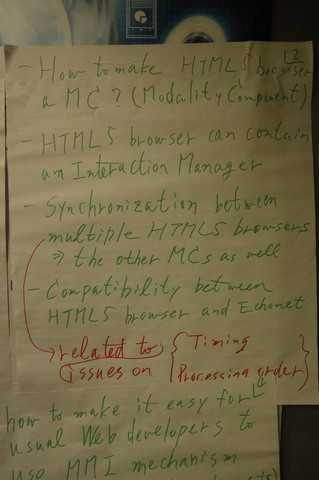 L2
- How to make HTML5 browser
a MC? (Modality Component)
- HTML5 browser can contain
an Interaction Manager
- Synchronization between
multiple HTML5 browsers
⇒ the other MCs as well
- Compatibility between
HTML5 browser and Echonet
related to { Timing
issues on Processing order }
how to make it easy for
usual Web developers to
use MMI mechanism